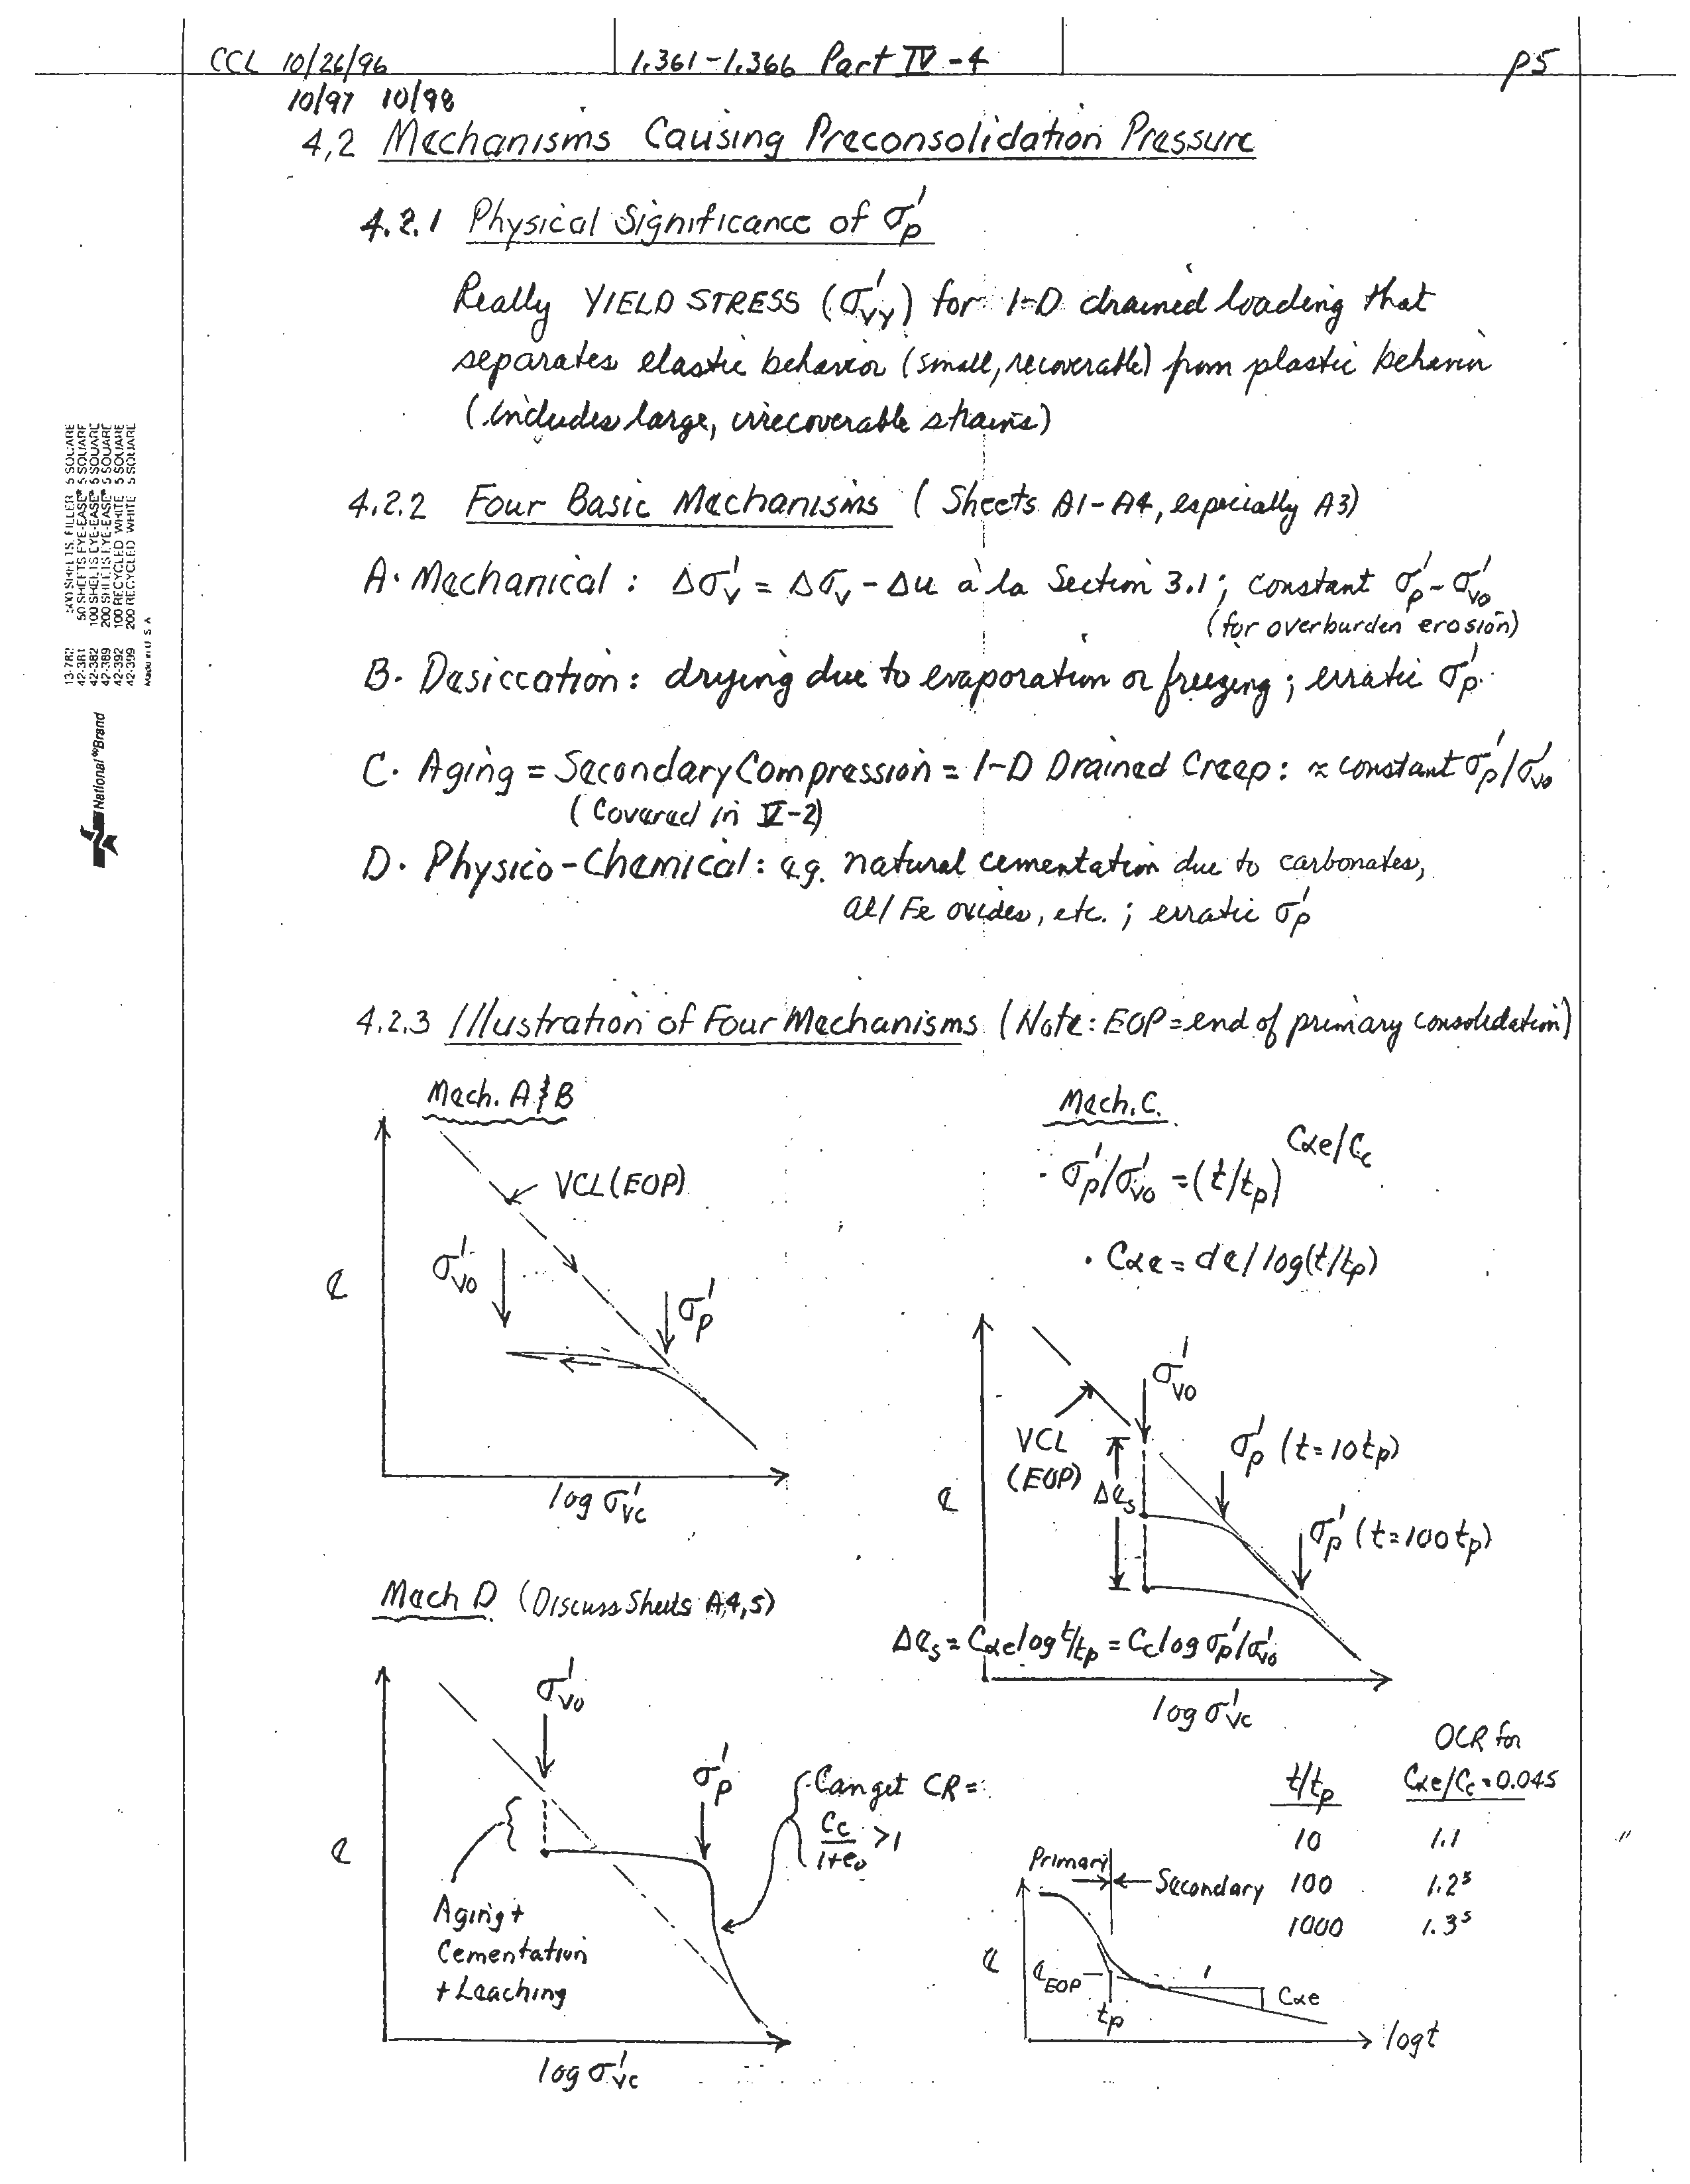 CCL 10/26/96
1.361-1.366 Part IV-4
p5
10/97 10/98
4.2 Mechanisms Causing Preconsolidation Pressure
4.2.1 Physical Significance of σ'p
Really YIELD STRESS (σ'vy) for 1-D drained loading that
separates elastic behavior (small, recoverable) from plastic behavior
(includes large, irrecoverable strains)
4.2.2 Four Basic Mechanisms (Sheets A1-A4, especially A3)
A. Mechanical: Δσ'v = Δσv - Δu à la Section 3.1; constant σ'p - σ'vo
(for overburden erosion)
B. Desiccation: drying due to evaporation or freezing; erratic σ'p
C. Aging = Secondary Compression = 1-D Drained Creep: ≈ constant σ'p/σ'vo
(Covered in V-2)
D. Physico-Chemical: e.g. natural cementation due to carbonates,
Al/Fe oxides, etc.; erratic σ'p
4.2.3 Illustration of Four Mechanisms (Note: EOP = end of primary consolidation)
Mech. A & B
VCL (EOP)
σ'vo
σ'p
e
log σ'vc
Mech. C.
· σ'p/σ'vo = (t/tp)^Cαe/Cc
· Cαe = de/log(t/tp)
σ'vo
VCL
(EOP)
Δes
σ'p (t=10tp)
e
σ'p (t=100tp)
Δes = Cαe log t/tp = Cc log σ'p/σ'vo
log σ'vc
Mech D (Discuss Sheets A4,5)
σ'vo
σ'p
Can get CR =
Cc/1+e₀ > 1
e
Aging +
Cementation
+ Leaching
log σ'vc
OCR for
t/tp Cαe/Cc = 0.045
10 1.1
100 1.2⁵
1000 1.3⁵
Primary
Secondary
e
eEOP
tp
1
Cαe
log t
42-381 50 SHEETS EYE-EASE® 5 SQUARE
42-382 100 SHEETS EYE-EASE® 5 SQUARE
42-389 200 SHEETS EYE-EASE® 5 SQUARE
42-392 100 RECYCLED WHITE 5 SQUARE
42-399 200 RECYCLED WHITE 5 SQUARE
National®Brand